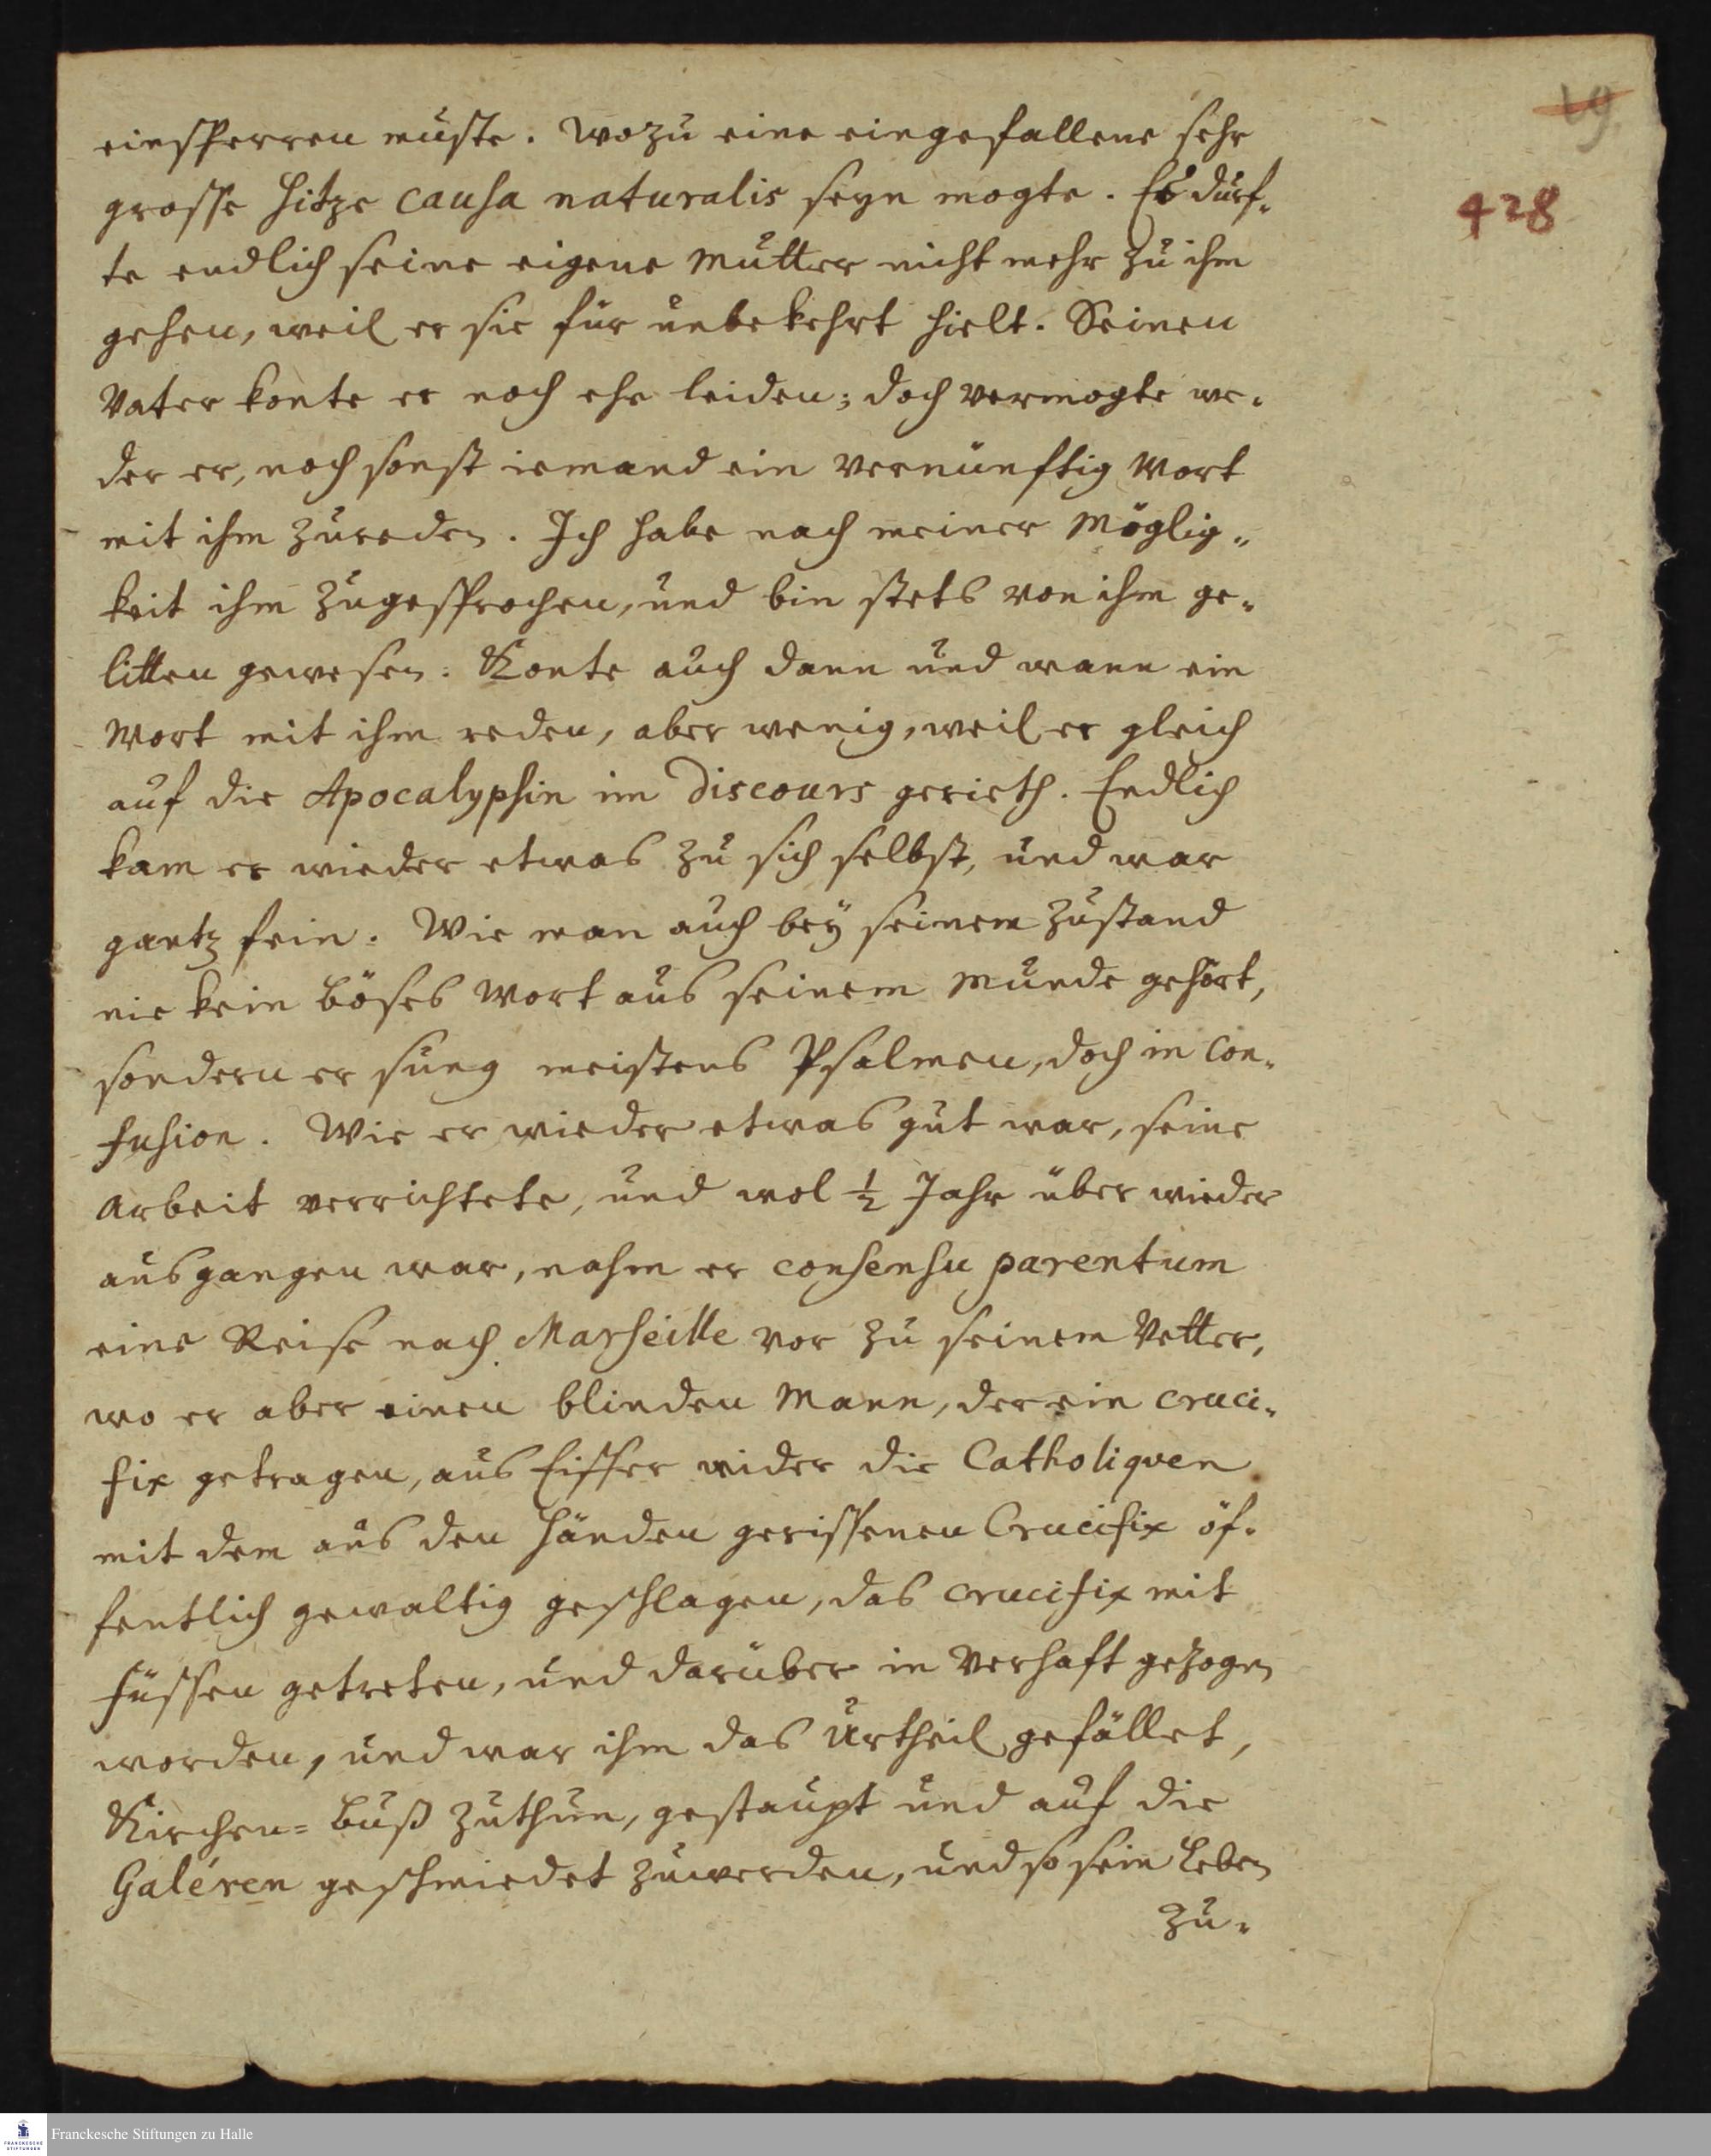 19.
428
einsperren muste. Wozu eine eingefallene sehr
grosse Hitze causa naturalis seyn mogte. Es durf-
te endlich seine eigene Mutter nicht mehr zu ihm
gehen, weil er sie für unbekehrt hielt. Seinen
Vater konte er noch ehe leiden; doch vermogte we-
der er, noch sonst iemand ein vernünftig Wort
mit ihm zureden. Ich habe nach meiner Möglig-
keit ihm zugesprochen, und bin stets von ihm ge-
litten gewesen. Konte auch dann und wann ein
Wort mit ihm reden, aber wenig, weil er gleich
auf die Apocalypsin im Discours gerieth. Endlich
kam er wieder etwas zu sich selbst, und war
gantz fein. Wie man auch bey seinem Zustand
nie kein böses Wort aus seinem Munde gehört,
sondern er sung meistens Psalmen, doch in Con-
fusion. Wie er wieder etwas gut war, seine
Arbeit verrichtete, und wol ½ Jahr über wieder
ausgangen war, nahm er consensu parentum
eine Reise nach Marseille vor zu seinem Vetter,
wo er aber einen blinden Mann, der ein Cruci-
fix getragen, aus Eiffer wider die Catholiquen
mit dem aus den Händen gerissenen Crucifix öf-
fentlich gewaltig geschlagen, das Crucifix mit
Füssen getreten, und darüber in Verhaft gezogen
worden, und war ihm das Urtheil gefället,
Kirchen=Buß zuthun, gestaupt und auf die
Galéren geschmiedet zuwerden, und so sein Leben
zu-
Franckesche Stiftungen zu Halle